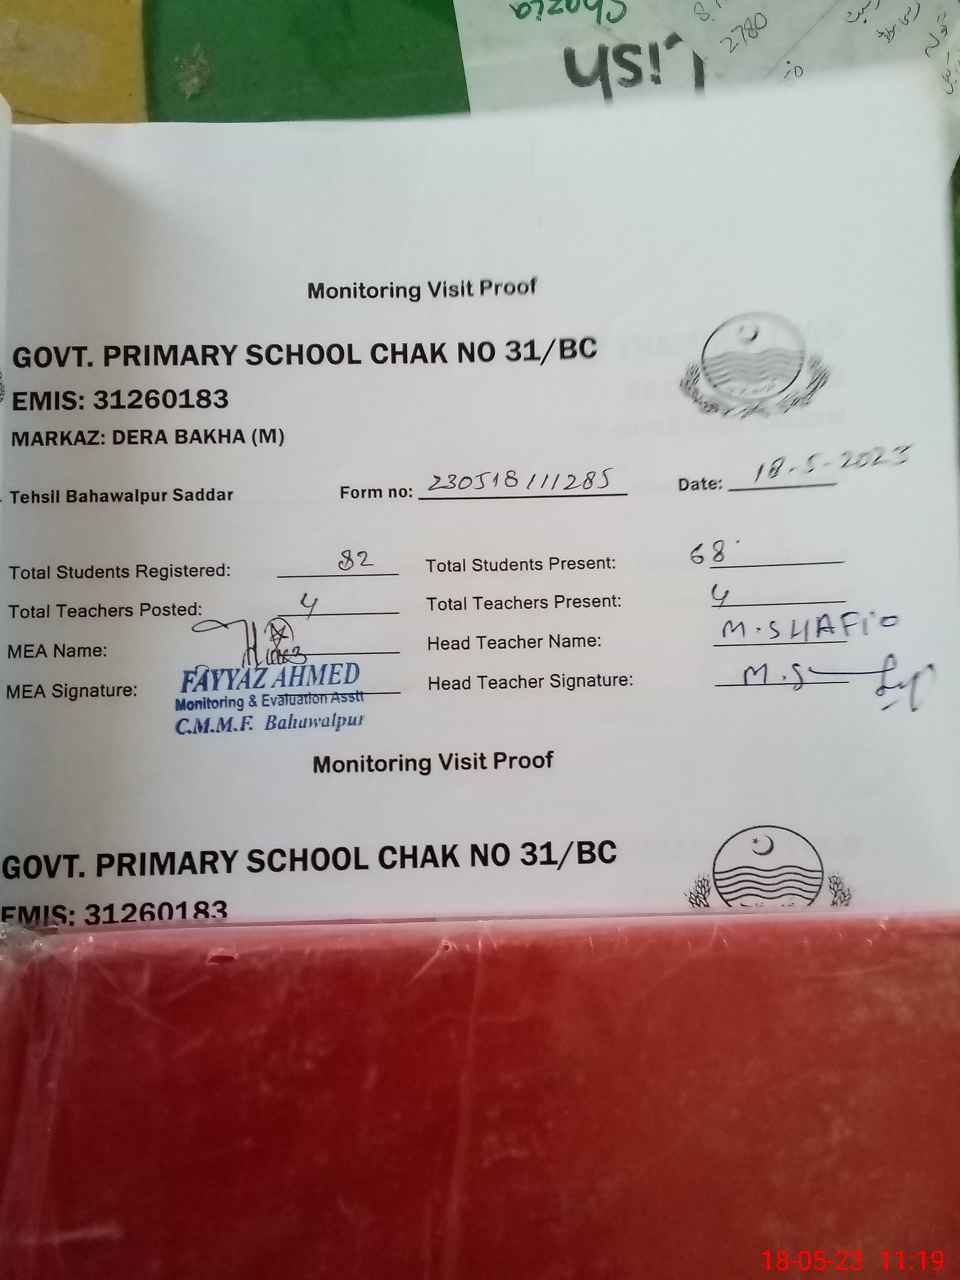 Chazia
Lish
2780
Monitoring Visit Proof
GOVT. PRIMARY SCHOOL CHAK NO 31/BC
EMIS: 31260183
MARKAZ: DERA BAKHA (M)
Tehsil Bahawalpur Saddar Form no: 230518111285 Date: 18-5-2023
Total Students Registered: 82 Total Students Present: 68
Total Teachers Posted: 4 Total Teachers Present: 4
MEA Name: Head Teacher Name: M.SHAFIQ
MEA Signature: FAYYAZ AHMED Head Teacher Signature: M.S
Monitoring & Evaluation Asstt
C.M.M.F. Bahawalpur
Monitoring Visit Proof
GOVT. PRIMARY SCHOOL CHAK NO 31/BC
EMIS: 31260183
18-05-23 11:19